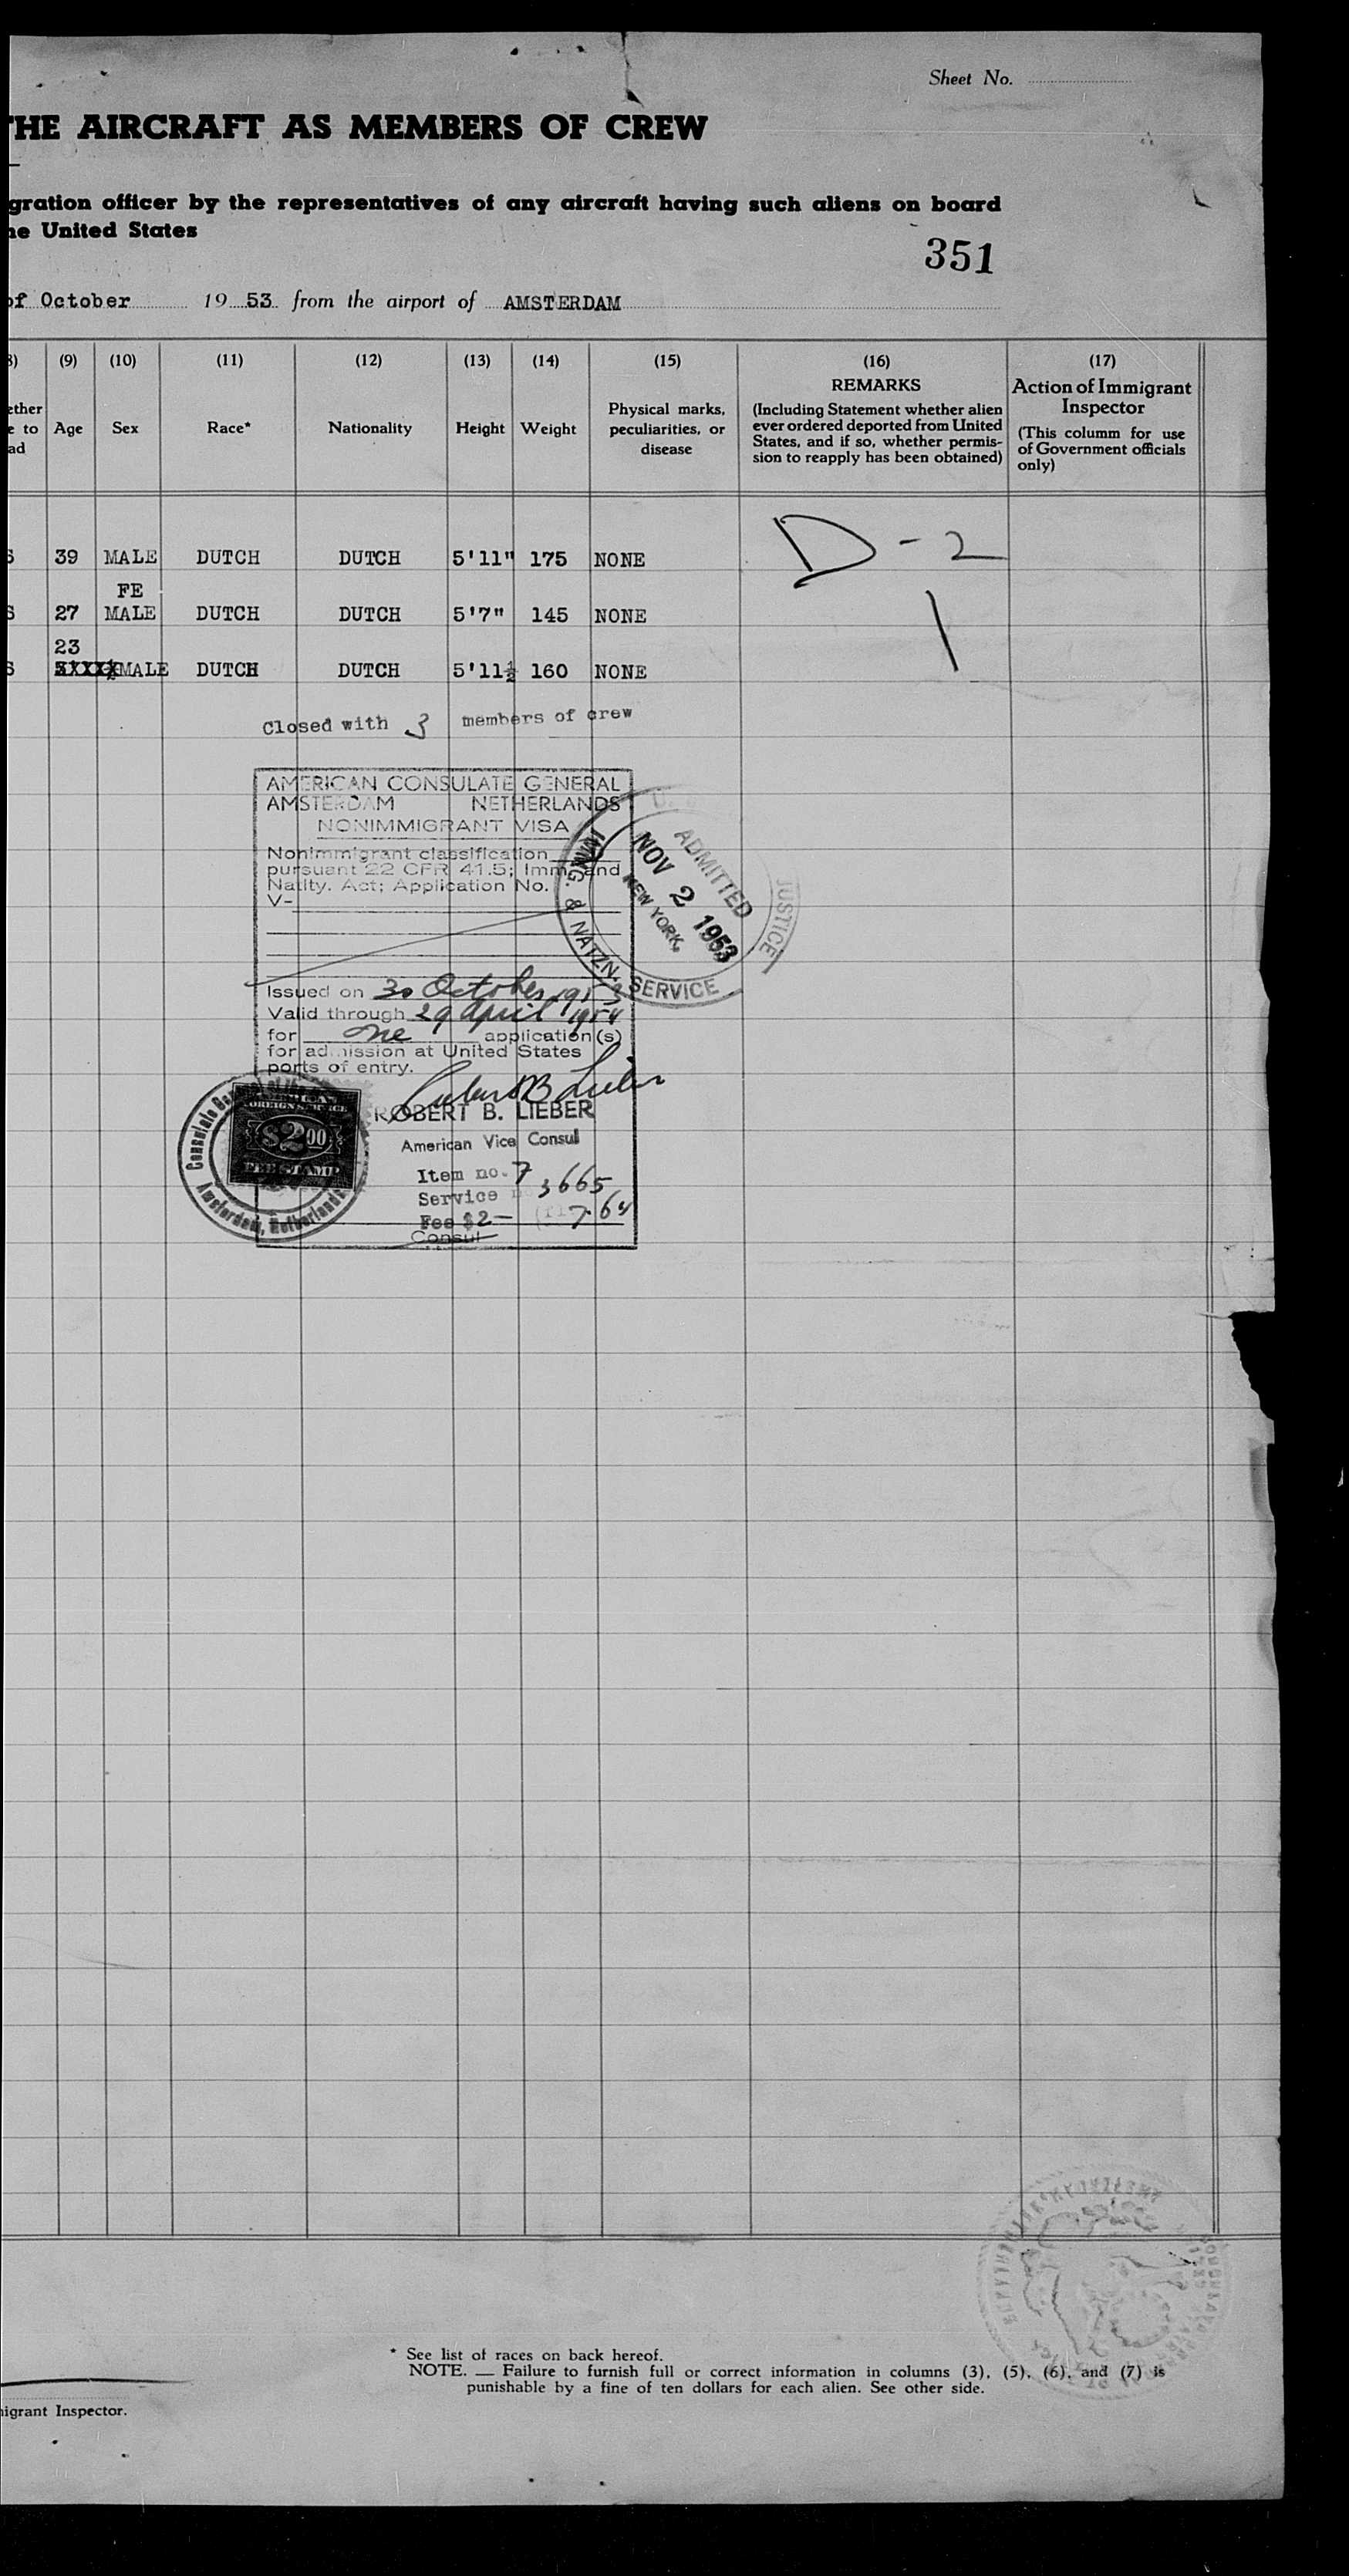 Sheet No.
THE AIRCRAFT AS MEMBERS OF CREW
gration officer by the representatives of any aircraft having such aliens on board
he United States
351
of October 19 53 from the airport of AMSTERDAM
(9) (10) (11) (12) (13) (14) (15) (16) (17)
ether
e to
ad
Age Sex Race* Nationality Height Weight
Physical marks,
peculiarities, or
disease
REMARKS
(Including Statement whether alien
ever ordered deported from United
States, and if so, whether permis-
sion to reapply has been obtained)
Action of Immigrant
Inspector
(This columm for use
of Government officials
only)
S 39 MALE DUTCH DUTCH 5'11" 175 NONE D-2
FE
S 27 MALE DUTCH DUTCH 5'7" 145 NONE
23
S MALE DUTCH DUTCH 5'11½ 160 NONE
Closed with 3 members of crew
AMERICAN CONSULATE GENERAL
AMSTERDAM NETHERLANDS
NONIMMIGRANT VISA
Nonimmigrant classification
pursuant 22 CFR 41.5; Imm. and
Natlty. Act; Application No.
V-
Issued on 30 October 1953
Valid through 29 April 1954
for one application(s)
for admission at United States
ports of entry.
ROBERT B. LIEBER
American Vice Consul
Item no. 7
Service 3665
Fee $2- 7.64
Consul
IMMG. & NATZN. SERVICE
JUSTICE
ADMITTED
NOV 2 1953
NEW YORK,
AMERICAN
FOREIGN SERVICE
$2.00
FEE STAMP
Amsterdam, Netherlands
* See list of races on back hereof.
NOTE. — Failure to furnish full or correct information in columns (3), (5), (6), and (7) is
punishable by a fine of ten dollars for each alien. See other side.
migrant Inspector.